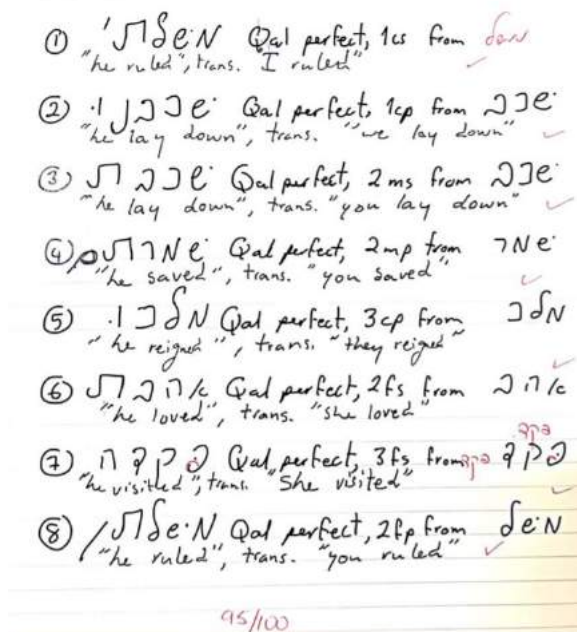 ① משלתי Qal perfect, 1cs from משל
"he ruled", trans. "I ruled"
② שכבנו Qal perfect, 1cp from שכב
"he lay down", trans. "we lay down"
③ שכבת Qal perfect, 2ms from שכב
"he lay down", trans. "you lay down"
④ שמרת Qal perfect, 2mp from שמר
"he saved", trans. "you saved"
⑤ מלכו Qal perfect, 3cp from מלכ
"he reigned", trans. "they reigned"
⑥ אהבת Qal perfect, 2fs from אהב
"he loved", trans. "she loved"
פקד
⑦ פקדה Qal perfect, 3fs from פקד פקד
"he visited", trans. "She visited"
⑧ משלת Qal perfect, 2fp from משל
"he ruled", trans. "you ruled"
95/100